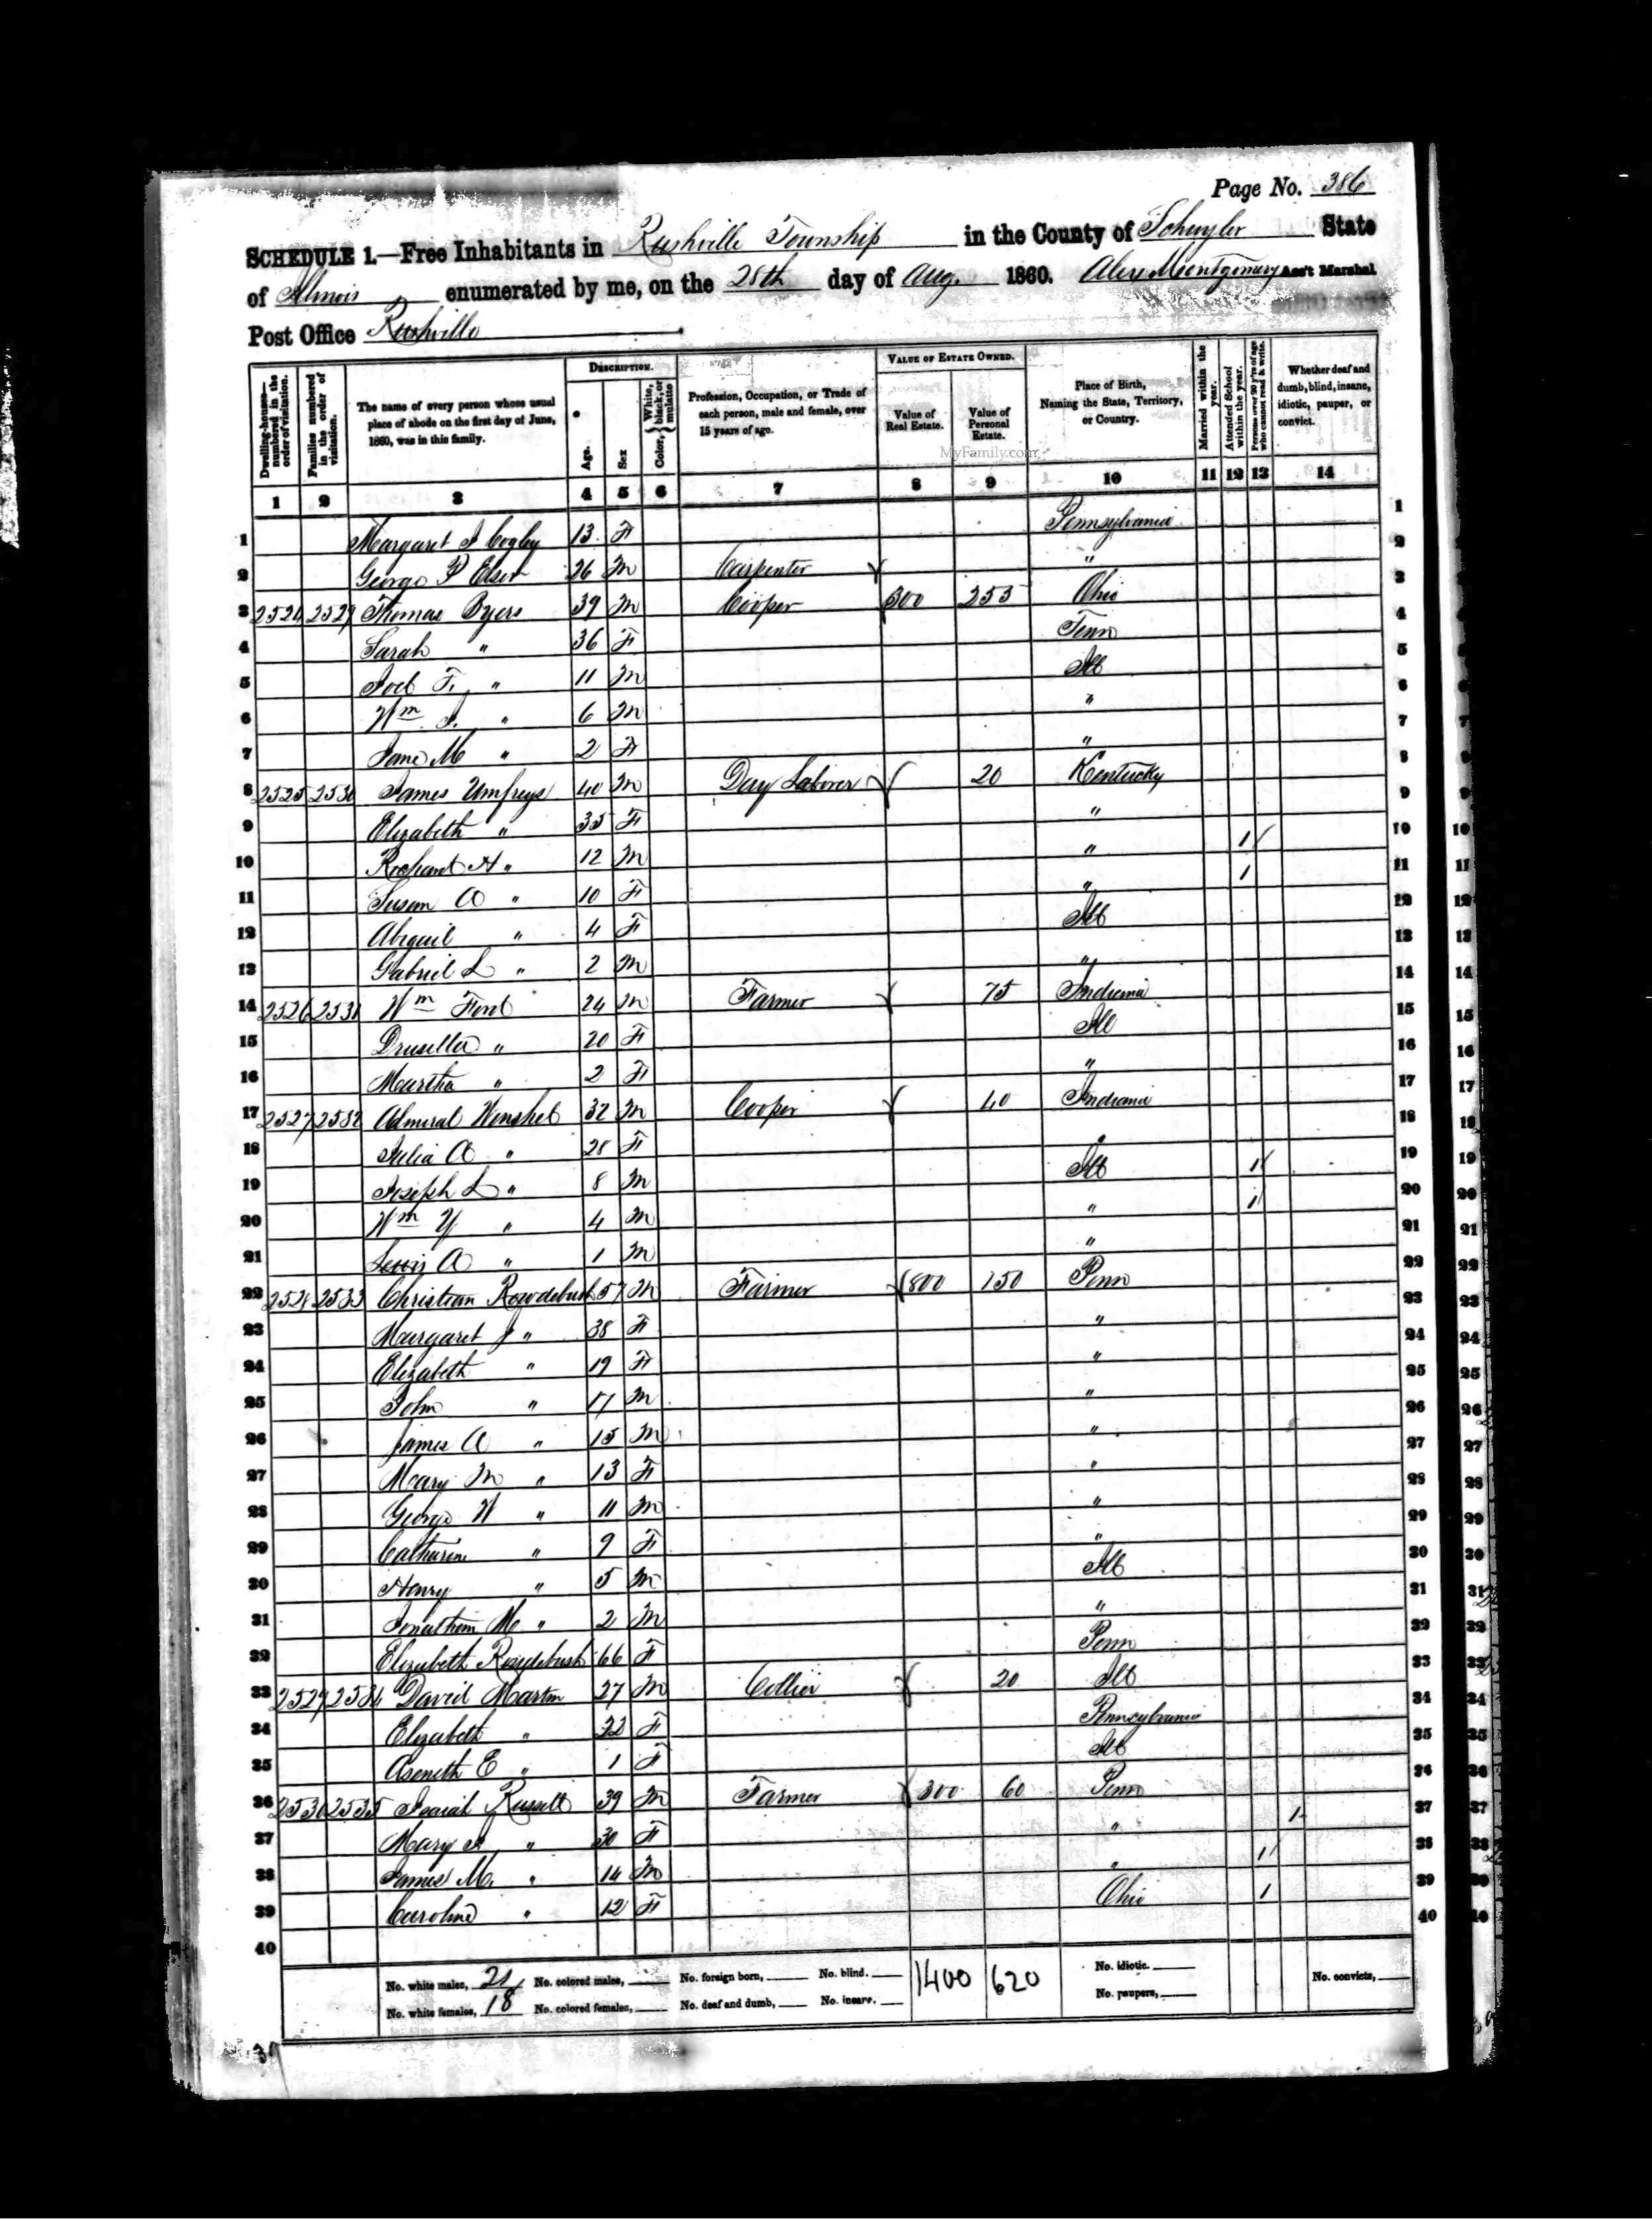 Page No. 386
SCHEDULE 1.—Free Inhabitants in Rushville Township in the County of Schuyler State
of Illinois enumerated by me, on the 28th day of Aug. 1860. Alex Montgomery Ass't Marshal
Post Office Rushville
Dwelling-houses—numbered in the order of visitation.
Families numbered in the order of visitation.
The name of every person whose usual place of abode on the first day of June, 1860, was in this family.
DESCRIPTION.
Age.
Sex
Color, White, black, or mulatto
Profession, Occupation, or Trade of each person, male and female, over 15 years of age.
VALUE OF ESTATE OWNED.
Value of Real Estate.
Value of Personal Estate.
Place of Birth, Naming the State, Territory, or Country.
Married within the year.
Attended School within the year.
Persons over 20 y'rs of age who cannot read & write.
Whether deaf and dumb, blind, insane, idiotic, pauper, or convict.
MyFamily.com
1 2 3 4 5 6 7 8 9 10 11 12 13 14
1 Margaret J Cogley 13 F Pennsylvania 1
2 George P 26 M Carpenter " 2
3 2524 2529 Thomas Byers 39 M Cooper 300 255 Ohio 3
4 Sarah " 36 F Tenn 4
5 Joel F. " 11 M Ill 5
6 Wm J. " 6 M " 6
7 Jane M " 2 F " 7
8 2525 2530 James Umfreys 40 M Day Laborer 20 Kentucky 8
9 Elizabeth " 35 F " 9
10 Richard H " 12 M " 1 10
11 Susan A " 10 F " 1 11
12 Abigail " 4 F Ill 12
13 Gabriel L " 2 M " 13
14 2526 2531 Wm Ford 24 M Farmer 75 Indiana 14
15 Drusilla " 20 F Ill 15
16 Martha " 2 F " 16
17 2527 2532 Admiral Wenshel 32 M Cooper 40 Indiana 17
18 Julia A " 28 F " 18
19 Joseph L " 8 M Ill 1 19
20 Wm Y " 4 M " 1 20
21 Lewis A " 1 M " 21
22 2528 2533 Christian Rowdebush 57 M Farmer 800 150 Penn 22
23 Margaret J " 38 F " 23
24 Elizabeth " 19 F " 24
25 John " 17 M " 25
26 James A " 15 M " 26
27 Mary M " 13 F " 27
28 George W " 11 M " 28
29 Catharine " 9 F " 29
30 Henry " 5 M Ill 30
31 Jonathan M " 2 M " 31
32 Elizabeth Rowdebush 66 F Penn 32
33 2529 2534 David Martin 27 M Collier 20 Ill 33
34 Elizabeth " 22 F Pennsylvania 34
35 Aseneth E " 1 F Ill 35
36 2530 2535 Isaiah Russell 39 M Farmer 300 60 Penn 36
37 Mary J " 30 F " 1 37
38 James M. " 14 M " 1 38
39 Caroline " 12 F Ohio 1 39
40 40
No. white males, 21 No. colored males, No. foreign born, No. blind. 1400 620 No. idiotic. No. convicts,
No. white females, 18 No. colored females, No. deaf and dumb, No. insane. No. paupers,
39